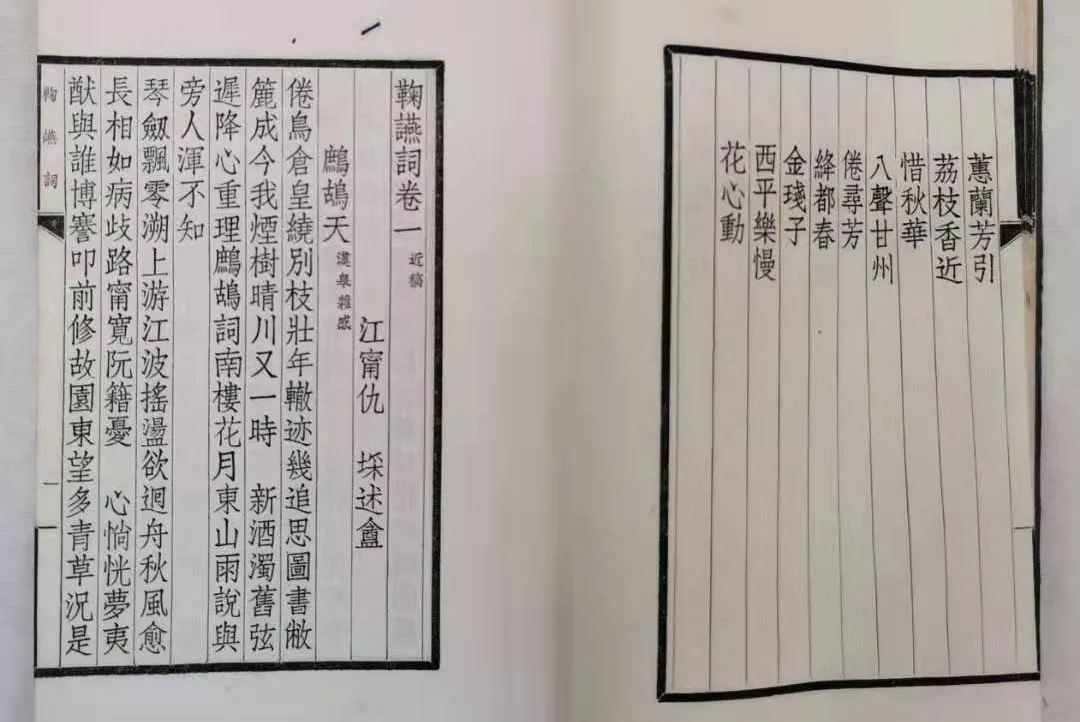 蕙蘭芳引
荔枝香近
惜秋華
八聲甘州
倦尋芳
絳都春
金琖子
西平樂慢
花心動
鞠讌詞卷一 近稿
江甯仇 埰述盦
鷓鴣天 漢皋雜感
倦鳥倉皇繞別枝壯年轍迹幾追思圖書敝
簏成今我煙樹晴川又一時 新酒濁舊弦
遲降心重理鷓鴣詞南樓花月東山雨說與
旁人渾不知
琴劔飄零溯上游江波搖盪欲迴舟秋風愈
長相如病歧路甯寬阮籍憂 心惝恍夢夷
猷與誰博謇叩前修故園東望多青草況是
鞠讌詞
一